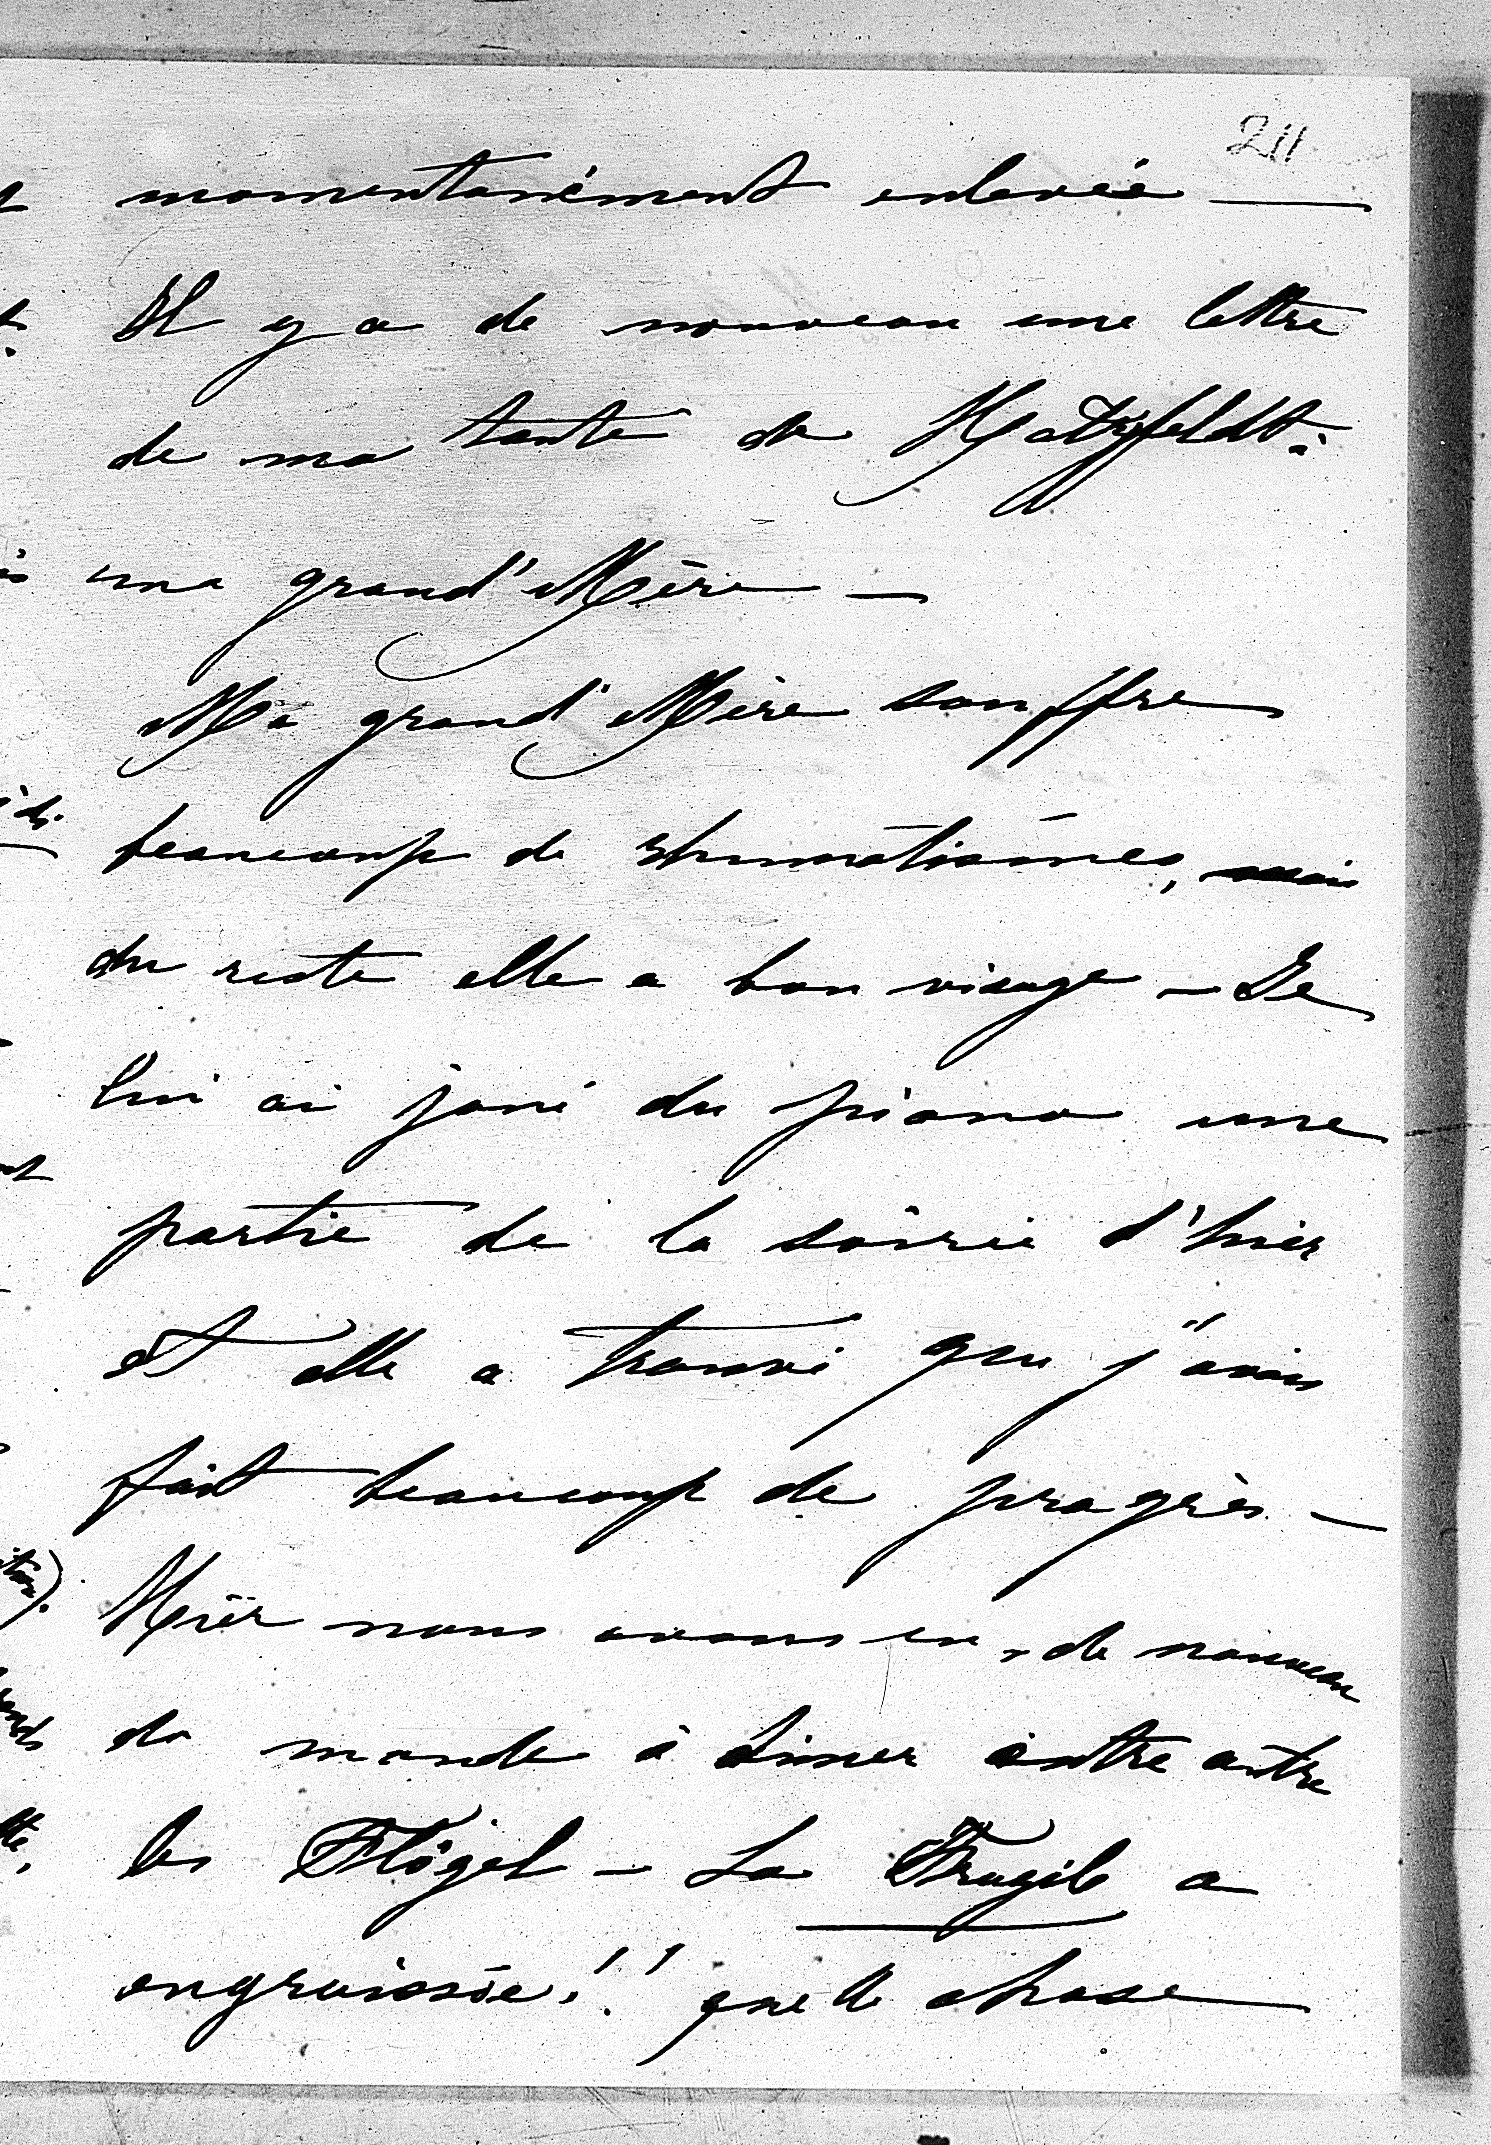 211
momentanément enlevée —
Il y a de nouveau une lettre
de ma tante de Hatzfeldt à
ma grand'Mère —
Ma grand'Mère souffre
beaucoup de rhumatismes, mais
du reste elle a bon visage — Je
lui ai joué du piano une
partie de la soirée d'hier
et elle a trouvé que j'avais
fait beaucoup de progrès —
Hier nous avons eu de nouveau
du monde à dîner entre autre
les Flögel — La Fragile a
engraissée!! quelle chose